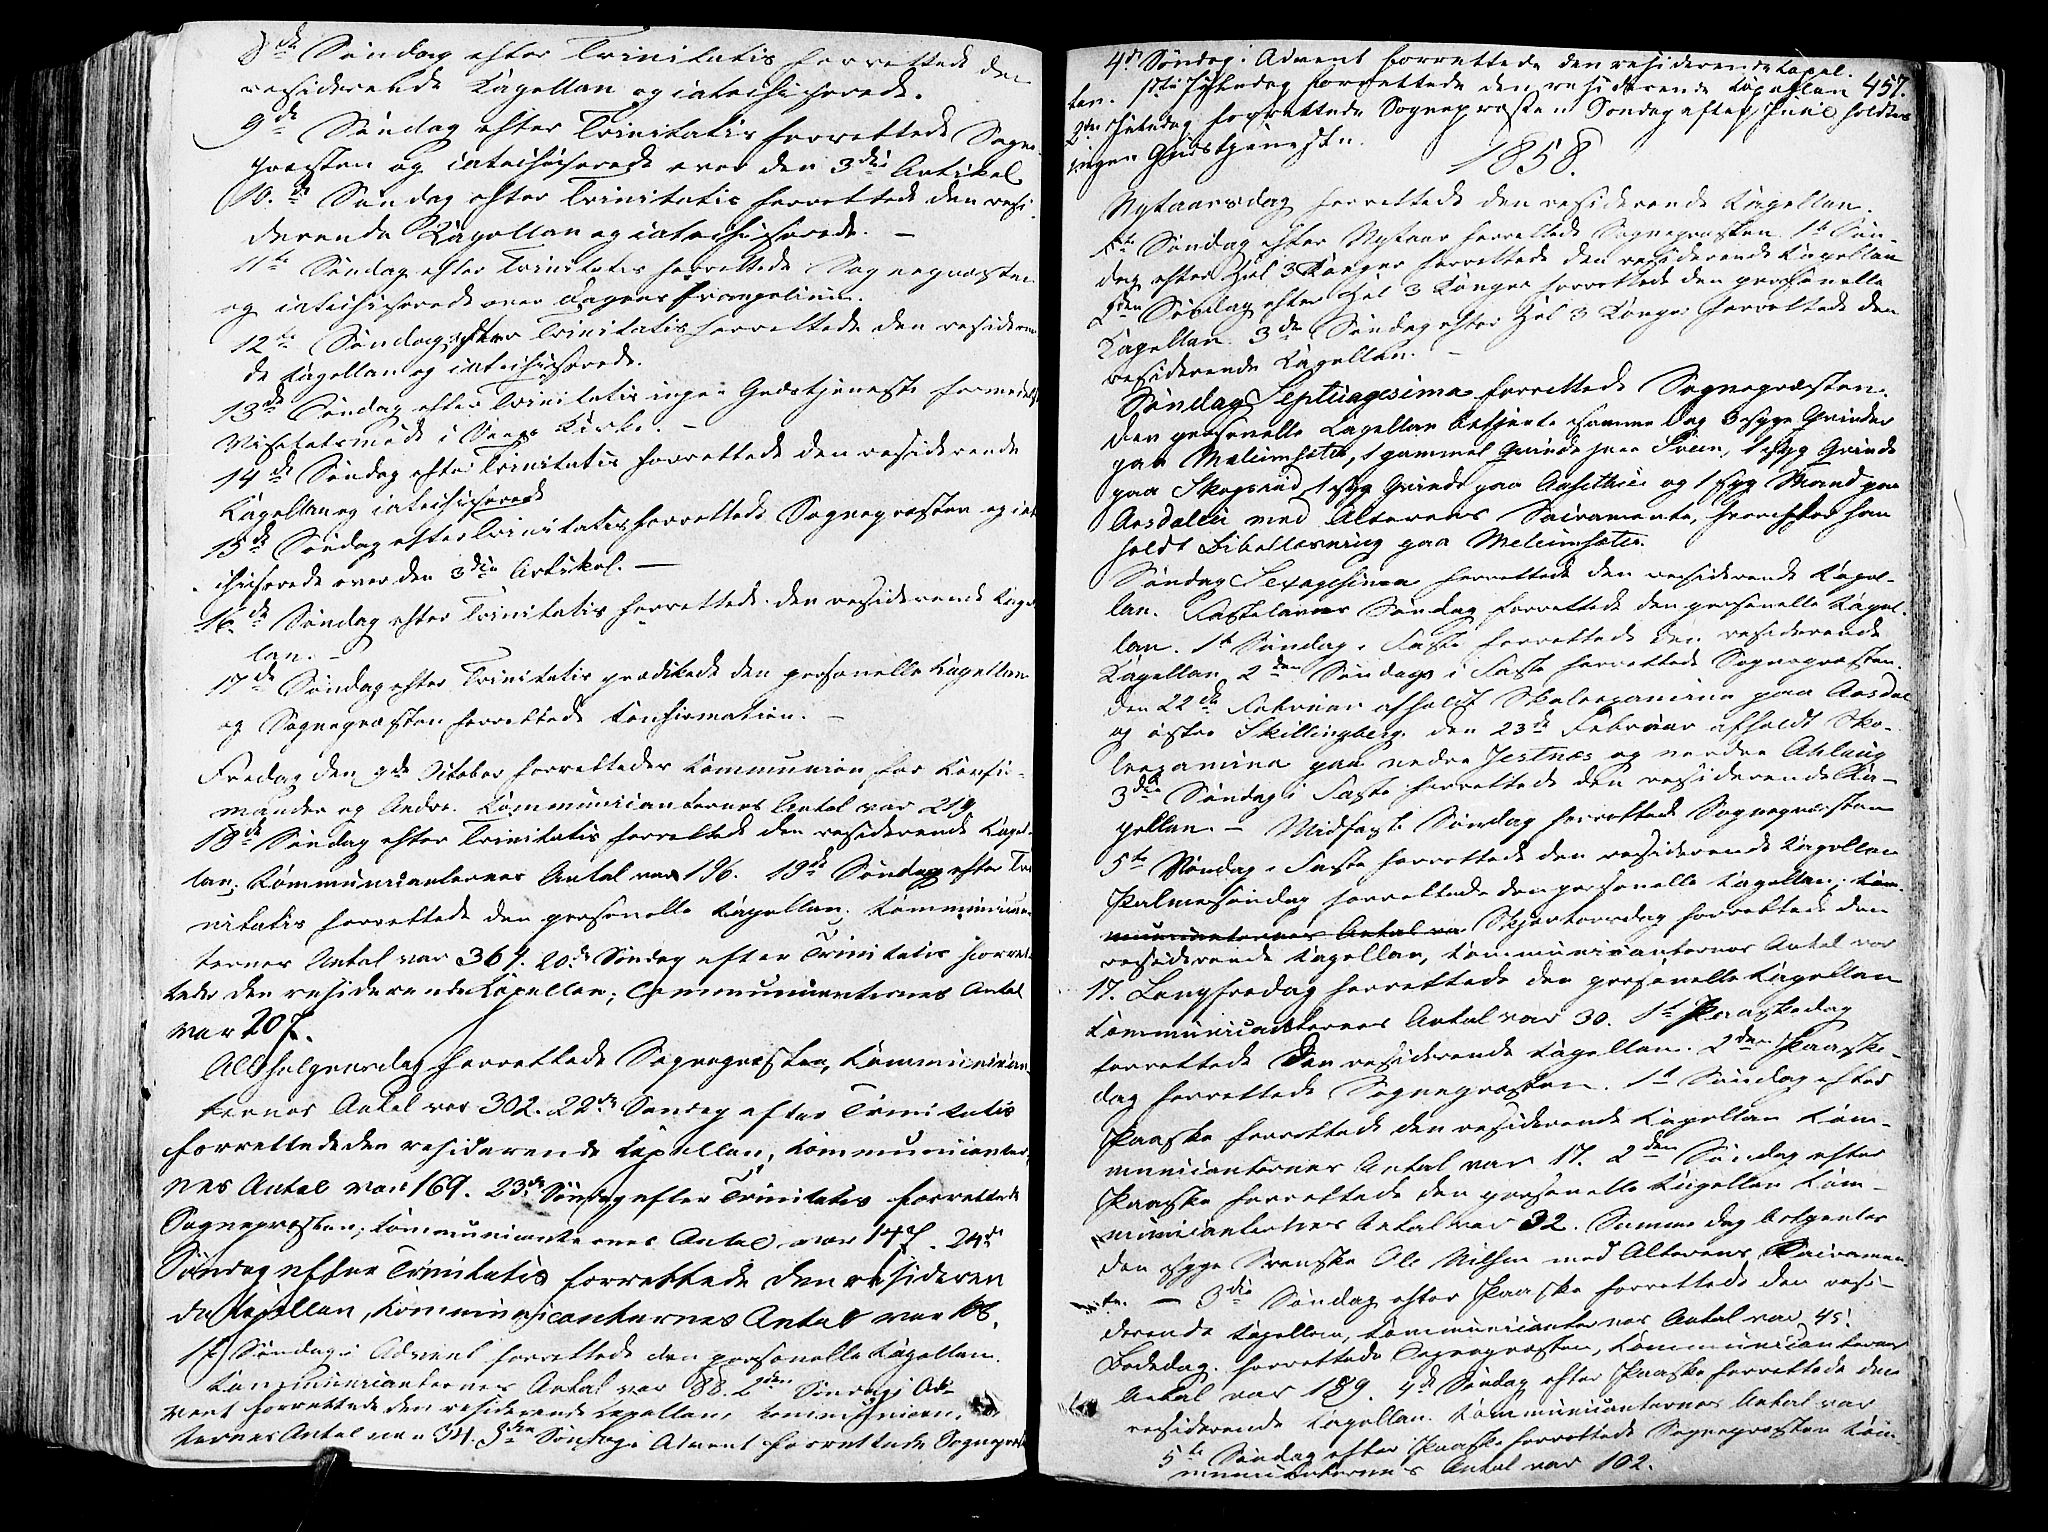 8de Søndag efter Trinitatis forrettede den
residerende Kapellan og catechiserede.
9de Søndag efter Trinitatis forrettede Sogne-
præsten og catechiserede over den 3die Artikel
10de Søndag efter Trinitatis forrettede den resi-
derende Kapellan og catechiserede. —
11te Søndag efter Trinitatis forrettede Sognepræsten
og catechiserede over Dagens Evangelium.
12te Søndag efter Trinitatis forrettede den resideren-
de Kapellan og catechiserede.
13de Søndag efter Trinitatis ingen Gudstjeneste formedelst
Visitatsmøde i Kirke. —
14de Søndag efter Trinitatis forrettede den residerende
Kapellan og catechiserede
15de Søndag efter Trinitatis forrettede Sognepræsten og cat
chiserede over den 3die Artikel. —
16de Søndag efter Trinitatis forrettede den residerende Kapel
lan. —
17de Søndag efter Trinitatis prædikede den personelle Kapellan
og Sognepræsten forrettede Confirmation. —
Fredag den 9de October forrettedes Communion for Confir-
mander og Andre. Kommunicanternes Antal var 219
18de Søndag efter Trinitatis forrettede den residerende Kapel-
lan; Kommunicanternes Antal var 196. 19de Søndag efter Tri
nitatis forrettede den personelle Kapellan; Kommunican-
ternes Antal var 367. 20de Søndag efter Trinitatis forret-
tede den residerende Kapellan; Communicanternes Antal
var 207.
Allehelgensdag forrettede Sognepræsten, Kommunican-
ternes Antal var 302. 22de Søndag efter Trinitatis
forrettede den residerende Kapellan, Kommunicanter-
nes Antal var 169. 23de Søndag efter Trinitatis forrettede
Sognepræsten; Kommunicanternes Antal var 147. 24de
Søndag efter Trinitatis forrettede den resideren
de Kapellan, Kommunicanternes Antal var
1ste Søndag i Advent forrettede den personelle Kapellan.
Kommunicanternes Antal var 88. 2den Søndag i Ad-
vent forrettede den residerende Kapellan, Kommunican-
ternes Antal var 34. 3die Søndag i Advent forrettede Sognepræ
4de Søndag i Advent forrettede den residerende Kapel-
lan. 1ste Juledag forrettede den residerende Kapellan 457.
2den Juledag forrettede Sognepræsten Søndag efter Juul holdtes
ingen Gudstjeneste.
1858.
Nytaarsdag forrettede den residerende Kapellan.
Søndag efter Nytaar forrettede Sognepræsten. 1st Søn-
dag efter Hel 3 Konger forrettede den residerende Kapellan
2den Søndag efter Hel 3 Konger forrettede den personelle
Kapellan. 3de Søndag efter Hel 3 Konger forrettede den
residerende Kapellan. —
Søndag Septuagesima forrettede Sognepræsten.
Den personelle Kapellan betjente samme Dag 3 syge Qvinder
paa Melumsæter, 1 gammel Qvinde paa, 1 syg Qvinde
paa Skogsrud, 1 syg Qvinde paa og 1 syg Mand paa
med Alterens Sacramente, hvorefter han
holdt Bibellæsning paa Melumsæter.
Søndag Sexagesima forrettede den residerende Kapel-
lan. Fastelavns Søndag forrettede den personelle Kapel-
lan. 1st Søndag i Faste forrettede den residerende
Kapellan, 2den Søndag i Faste forrettede Sognepræsten.
den 22de Februar afholdt Skoleexamina paa
og østre Skillingberg. den 23de Februar afholdt Sko-
leexamina paa nedre Jestnæs og nordre
3die Søndag i Faste forrettede den residerende Ka-
pellan. — Midfaste Søndag forrettede Sognepræsten
5te Søndag i Faste forrettede den residerende Kapellan
Palmesøndag forrettede den personelle Kapellan; Kom-
municanternes Antal va Skjertorsdag forrettede den
residerende Kapellan, Kommunicanternes Antal var
17. Langfredag forrettede den personelle Kapellan
Kommunicanternes Antal var 30. 1st Paaskedag
forrettede den residerende Kapellan. 2den Paaske-
dag forrettede Sognepræsten. 1st Søndag efter
Paaske forrettede den residerende Kapellan Kom-
municanternes Antal var 17. 2den Søndag efter
Paaske forrettede den personelle Kapellan Kom-
municanternes Antal var 32. Samme dag betjentes
den syge Svenske Ole Nilsen med Alterens Sacramen-
te. — 3die Søndag efter Paaske forrettede den resi-
derende Kapellan, Kommunicanternes Antal var 45.
Bededag forrettede Sognepræsten, Kommunicanternes
Antal var 189. 4de Søndag efter Paaske forrettede den
residerende Kapellan. Kommunicanternes Antal var
5te Søndag efter Paaske forrettede Sognepræsten Kom-
municanternes Antal var 102.